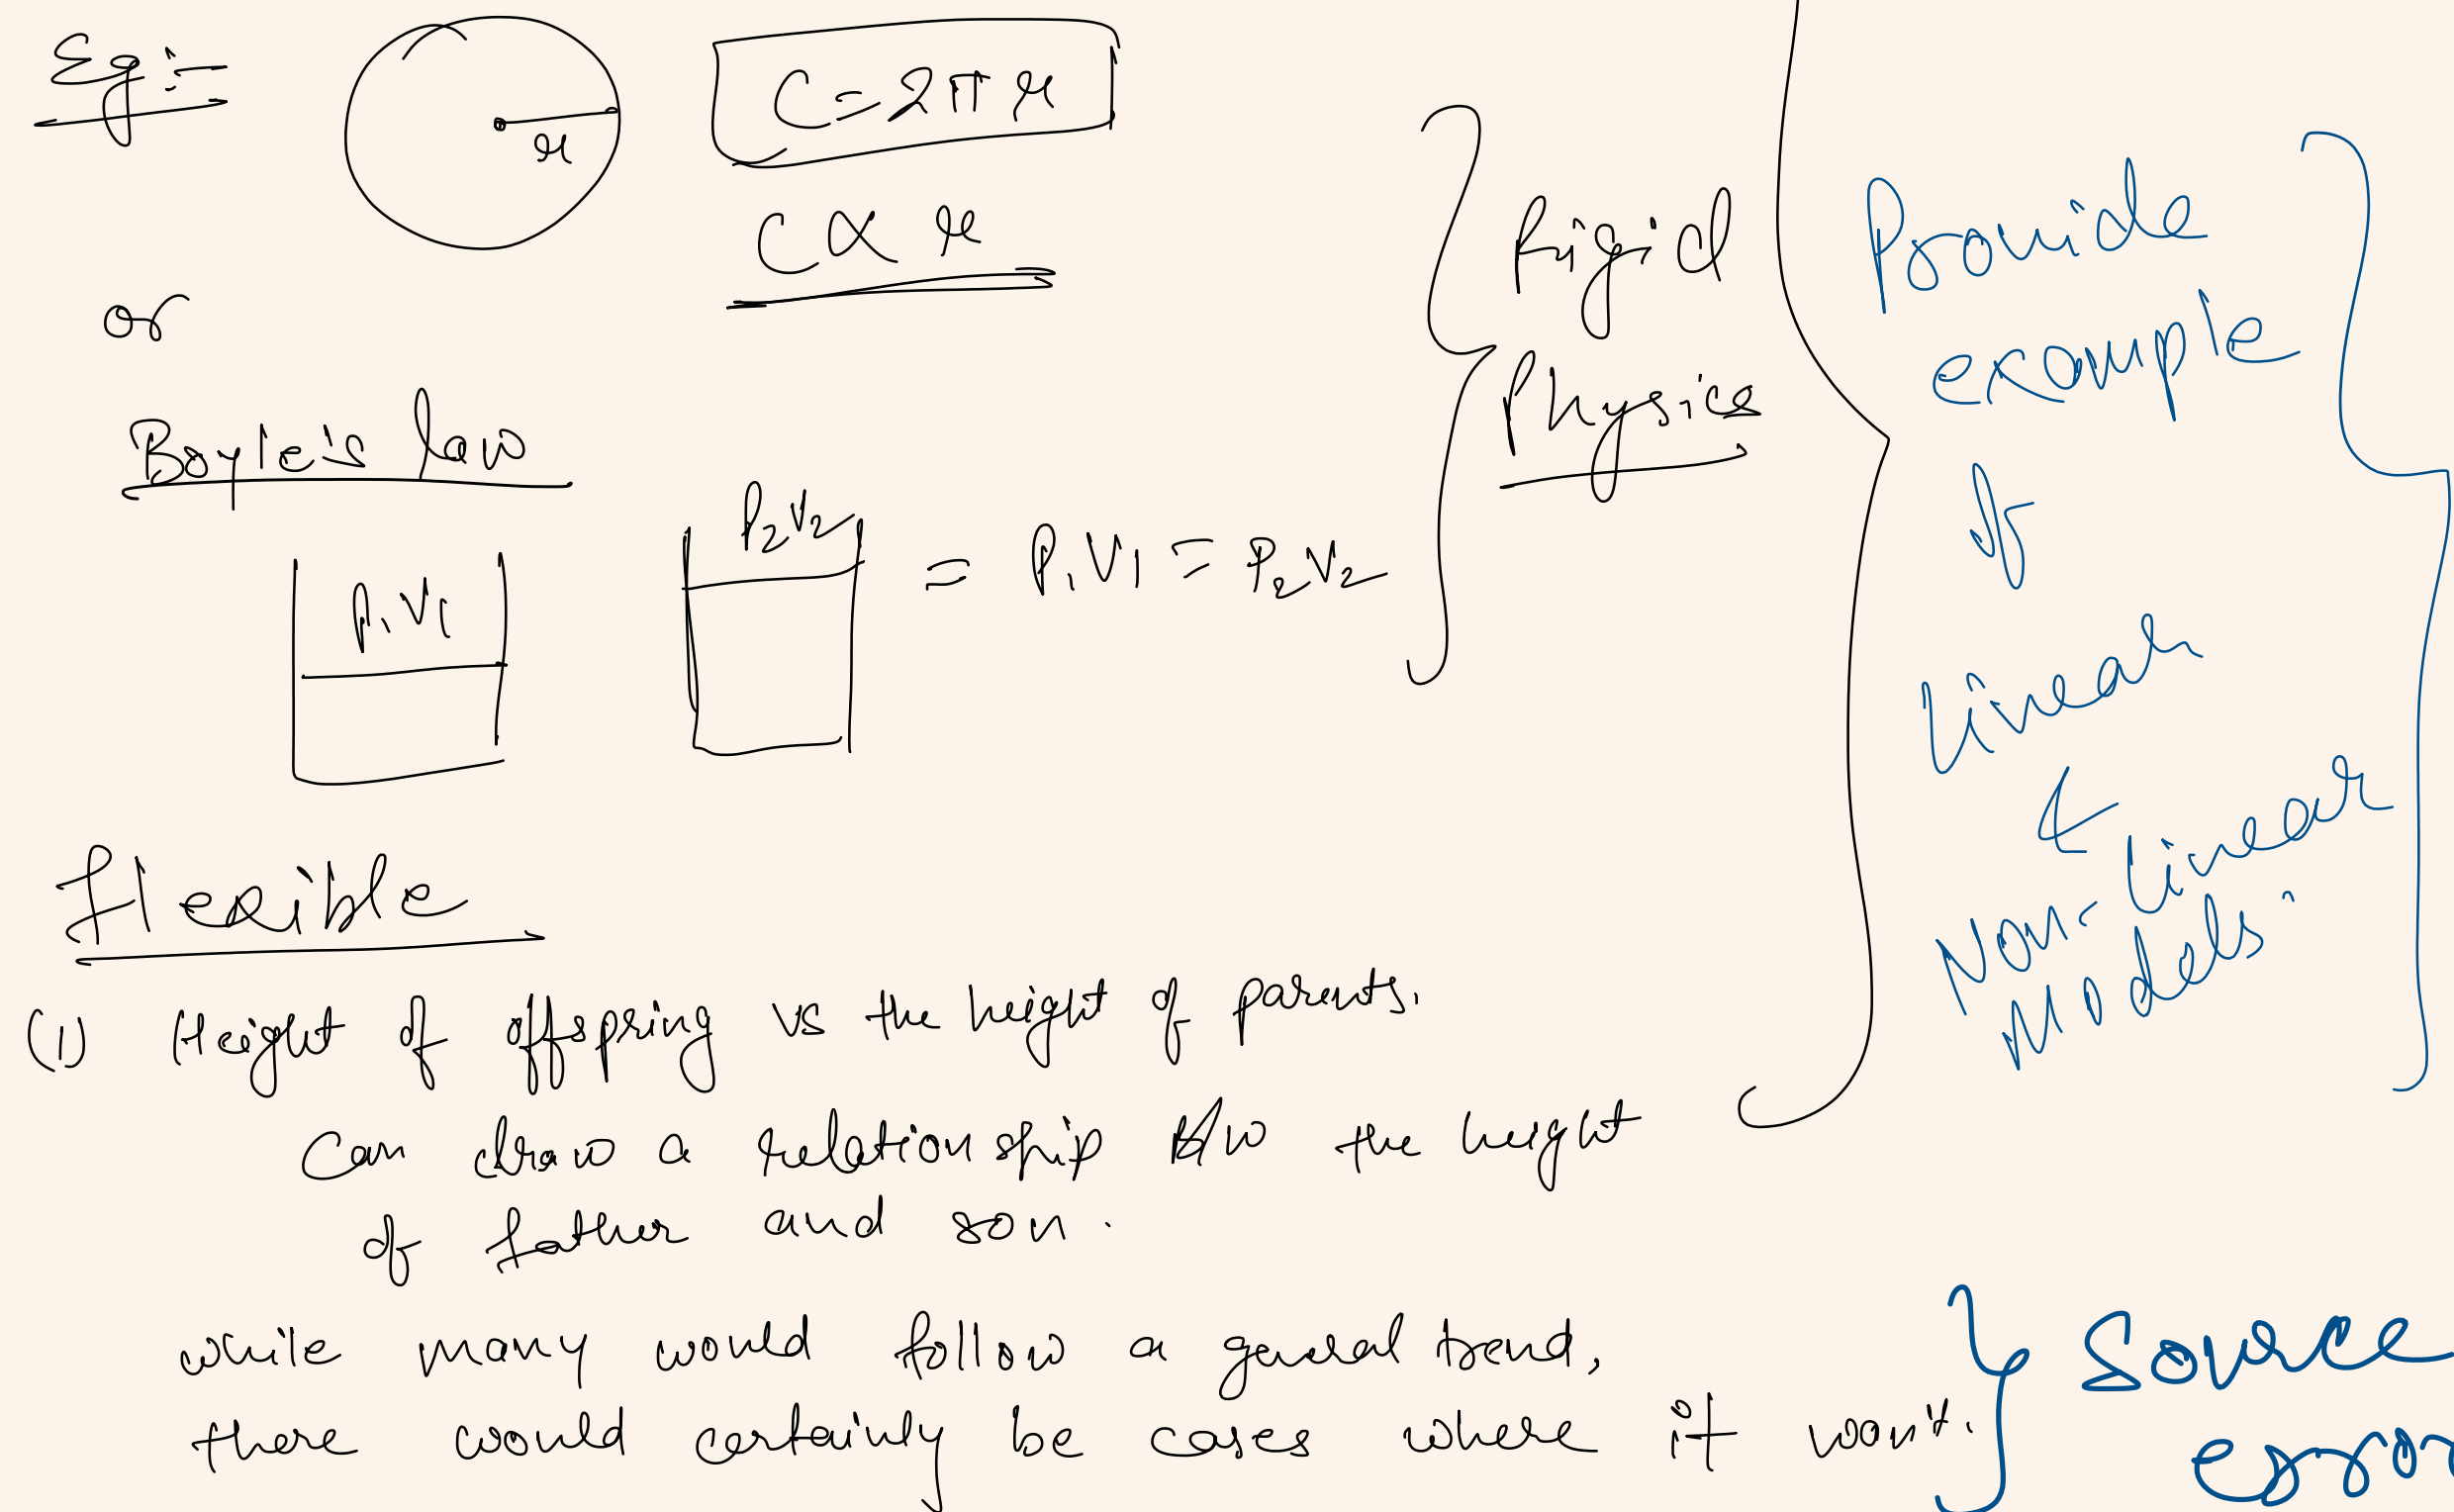 Eg :=
r
C = 2πr
C α r
or
Boyle's law
P1V1
P2V2
= P1V1 = P2V2
Rigid
Physics
Provide
example
of
linear
&
Non-linear
Models.
Flexible
(1) Height of offspring vs the height of parents.
Can draw a relationship b/w the height
of father and son.
while many would follow a general trend,
there would certainly be cases where it won't.
Source
error